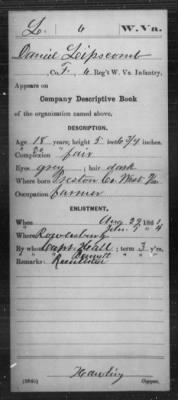 L. 6 W.Va.
Daniel Lipscomb
, Co. F, 6 Reg't W. Va. Infantry.
Appears on
Company Descriptive Book
of the organization named above.
DESCRIPTION.
Age 18 years; height 5 feet 6 3/4 inches.
Complexion fair
Eyes grey; hair dark
Where born Preston Co. West Va
Occupation farmer
ENLISTMENT.
When Aug 22, 1861
Where Rowlesburg
By whom Capt. Hall; term 3 y'rs.
Remarks:
(3830)
Copyist.